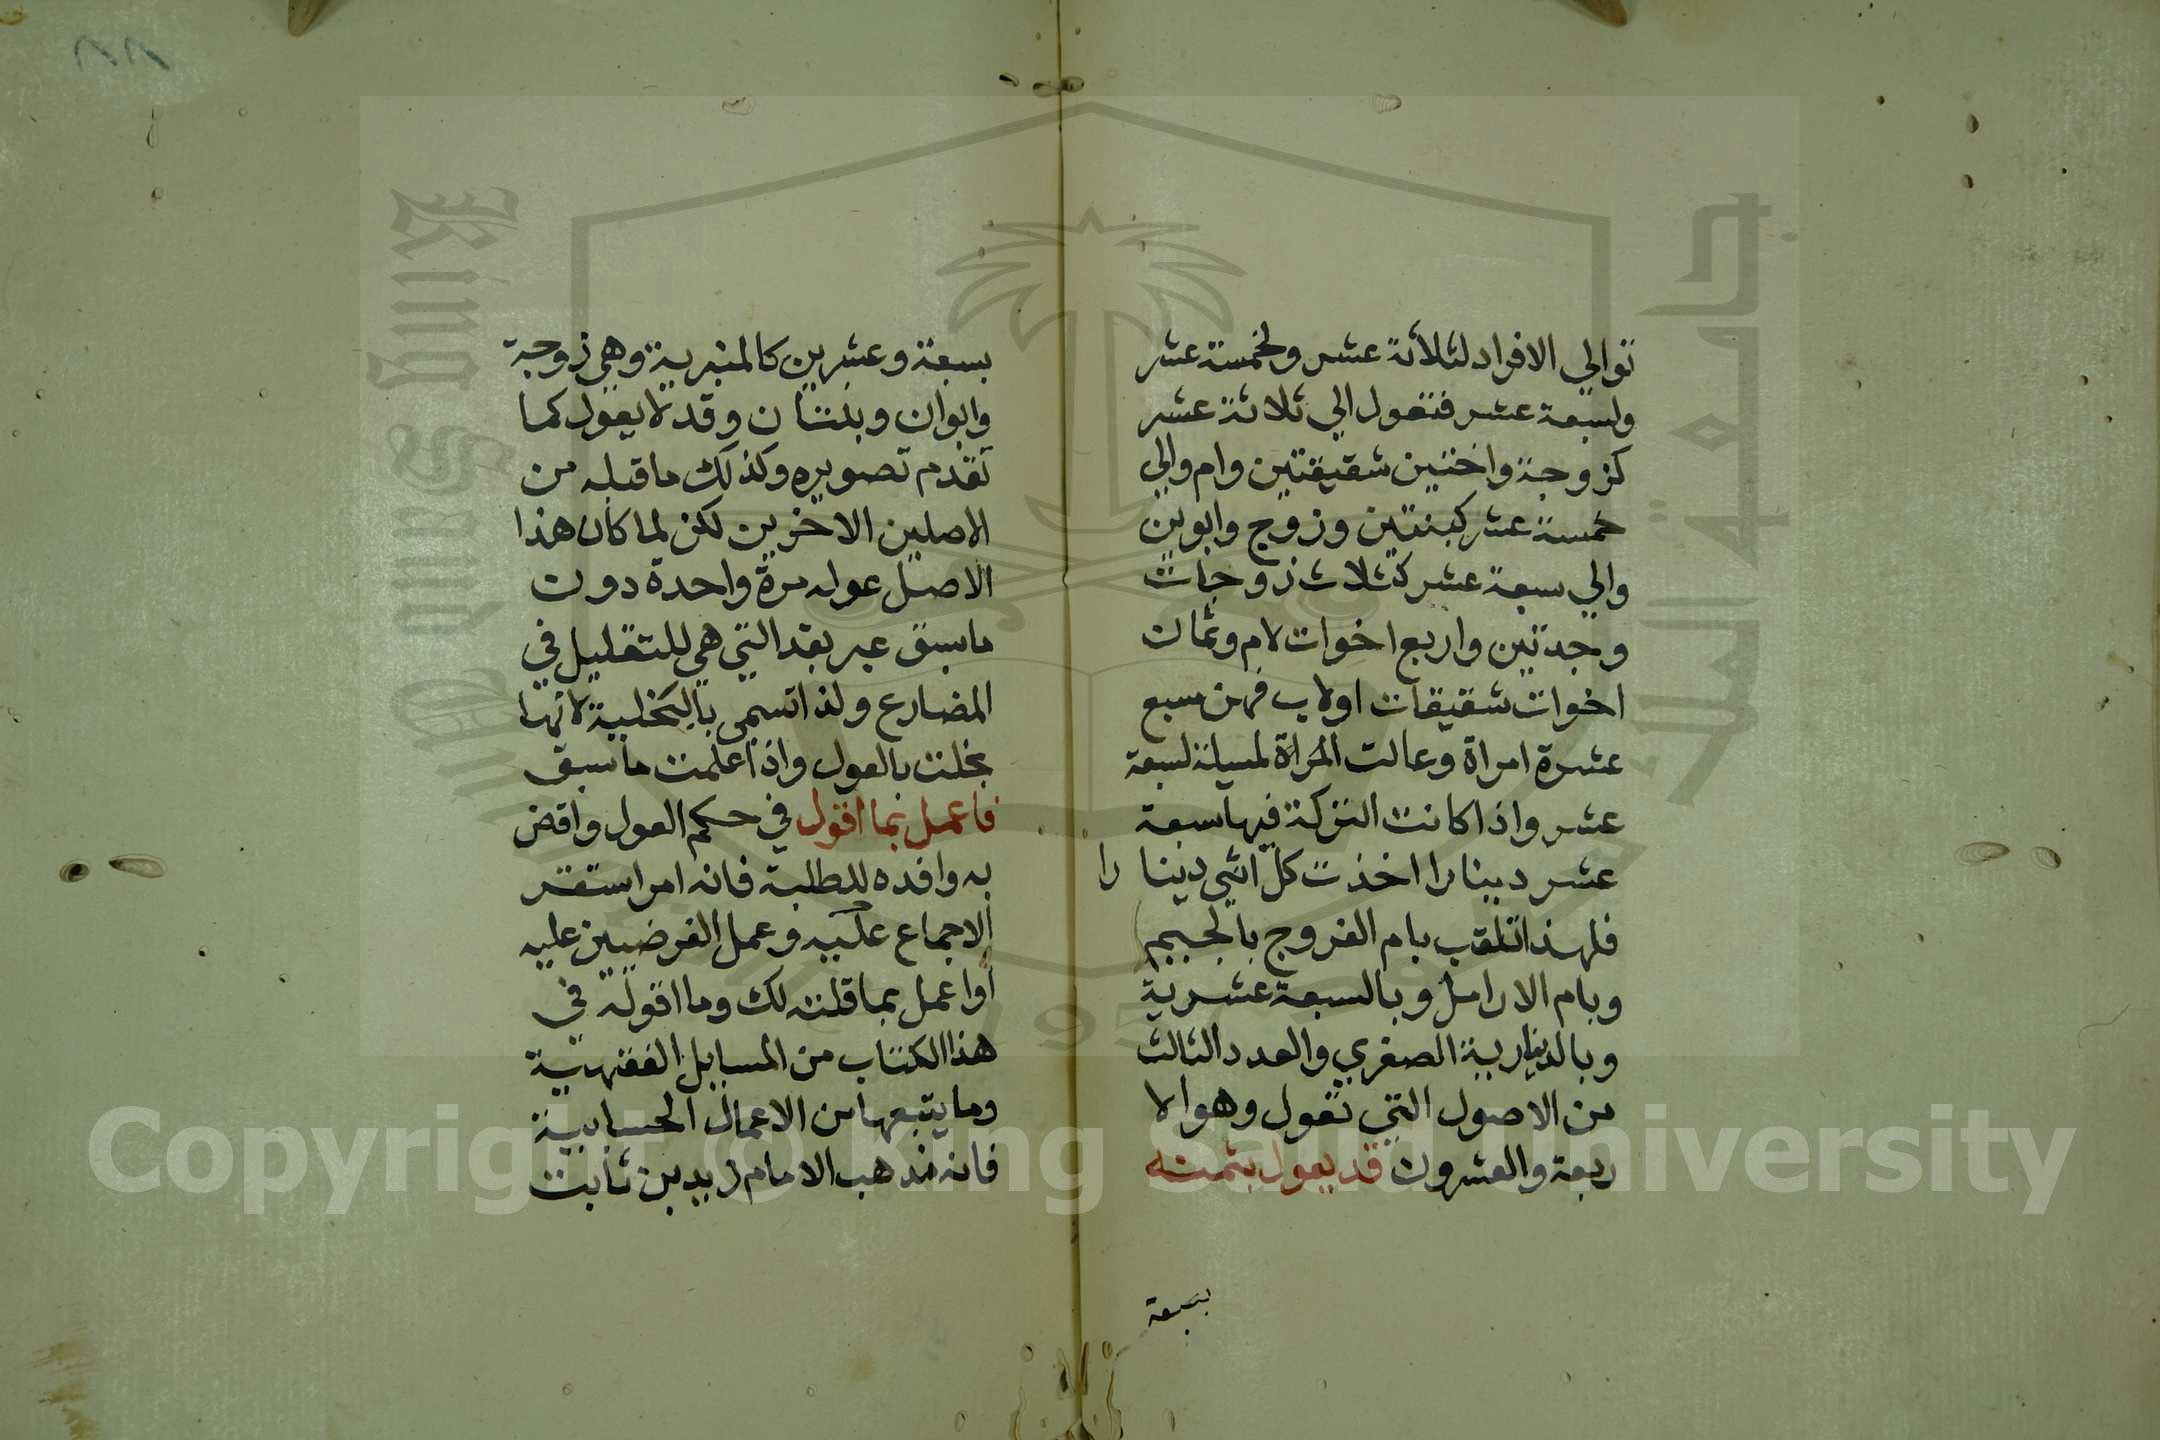 توالي الافراد لثلاثة عشر ولخمسة عشر
ولسبعة عشر فتعول الي ثلاثة عشر
كزوجة واختين شقيقتين وام والي
خمسة عشر كبنتين وزوج وابوين
والي سبعة عشر كثلاث زوجات
وجدتين واربع اخوات لام وثمان
اخوات شقيقات اولاب فهن سبع
عشرة امراة وعالت المراة لمسيلة لسبعة
عشر واذا كانت التركة فيها سبعة
عشر دينارا اخذت كل انثي دينارا
فلهذا تلقب بام الفروج بالجيم
وبام الارامل وبالسبعة عشرية
وبالدينارية الصغري والعدد الثالث
من الاصول التي تعول وهو الا
ربعة والعشرون قد يعول بثمنه
بسبعة
٨٨
بسبعة وعشرين كالمنبرية وهي زوجة
وابوان وبنتان وقد لا يعول كما
تقدم تصويره وكذلك ما قبله من
الاصلين الاخرين لكن لما كان هذا
الاصل عوله مرة واحدة دون
ما سبق عبر بقد التي هي للتقليل في
المضارع ولذا تسمي بالبخلية لانها
بخلت بالعول واذا علمت ما سبق
فاعمل بما اقول في حكم العول واقض
به وافده للطلبة فانه امر استقر
الاجماع عليه وعمل الفرضيين عليه
أواعمل بما قلته لك وما اقوله في
هذا الكتاب من المسايل الفقهية
وما يتبعها من الاعمال الحسابية
فانه مذهب الامام زيد بن ثابت
King Saud University
جامعة الملك سعود
1957
Copyright © King Saud University